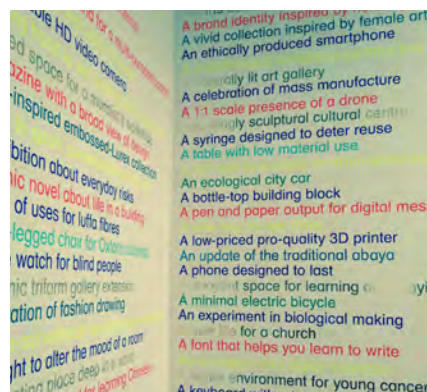 ble HD video camera
ed space for a
azine with a broad view of design
-inspired embossed-Lurex collection
bition about everyday risks
ic novel about life in a building
of uses for luffa fibres
-legged chair for Oxford
watch for blind people
nic triform gallery extension
ation of fashion drawing
ht to alter the mood of a room
ating place deep in a
for learning Chinese
A brand identity inspired by
A vivid collection inspired by female art
An ethically produced smartphone
lit art gallery
A celebration of mass manufacture
A 1:1 scale presence of a drone
sculptural cultural centre
A syringe designed to deter reuse
A table with low material use
An ecological city car
A bottle-top building block
A pen and paper output for digital mes
A low-priced pro-quality 3D printer
An update of the traditional abaya
A phone designed to last
space for learning
A minimal electric bicycle
An experiment in biological making
for a church
A font that helps you learn to write
environment for young cancer
A keyboard